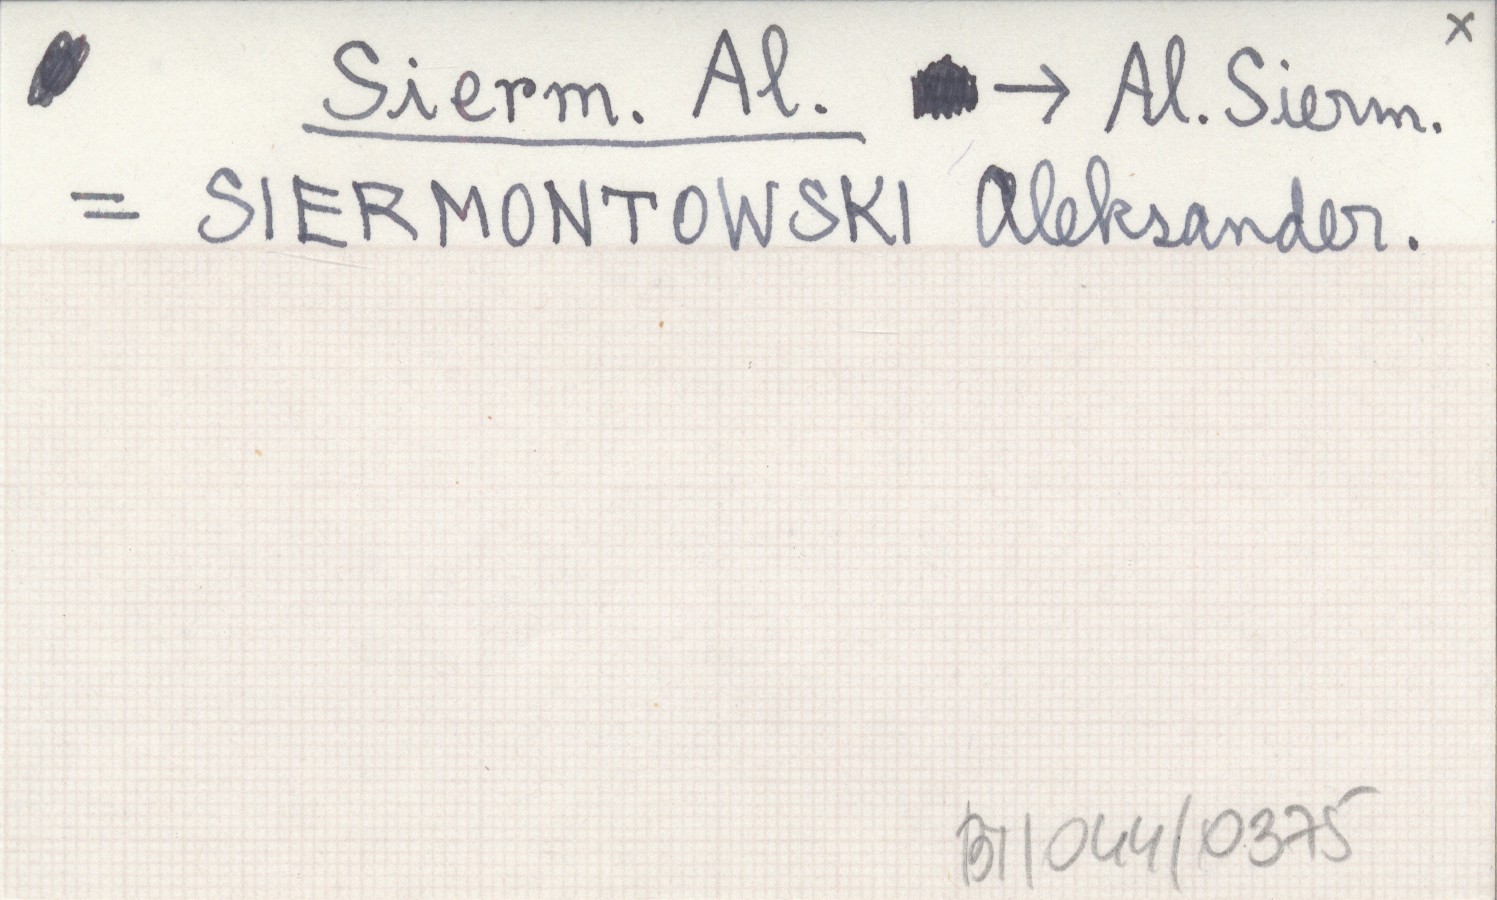 x
Sierm. Al. → Al. Sierm.
= SIERMONTOWSKI Aleksander.
BT/044/0375